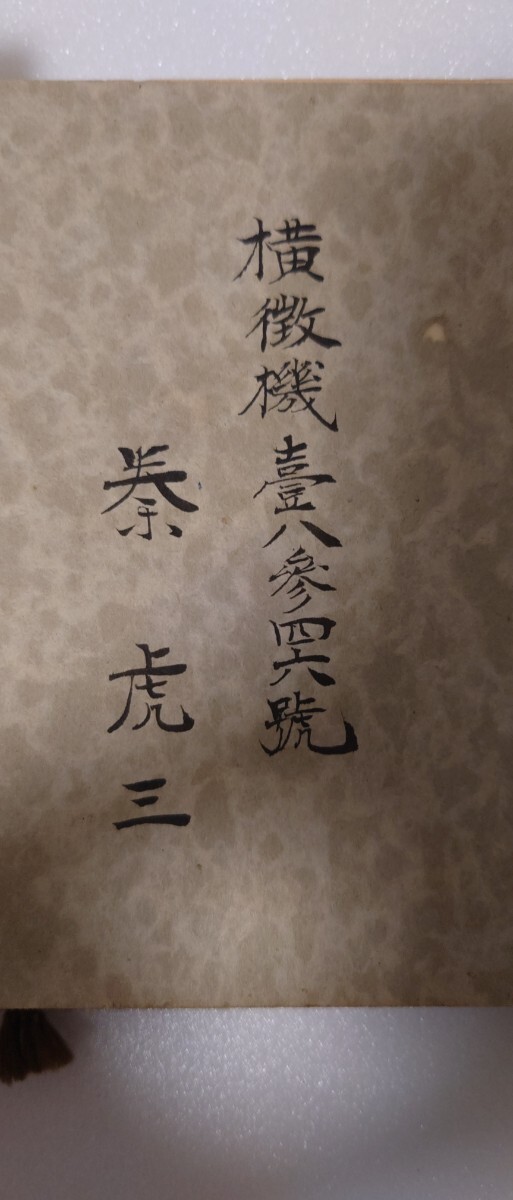 横徴機壹八参四六號
秦虎三